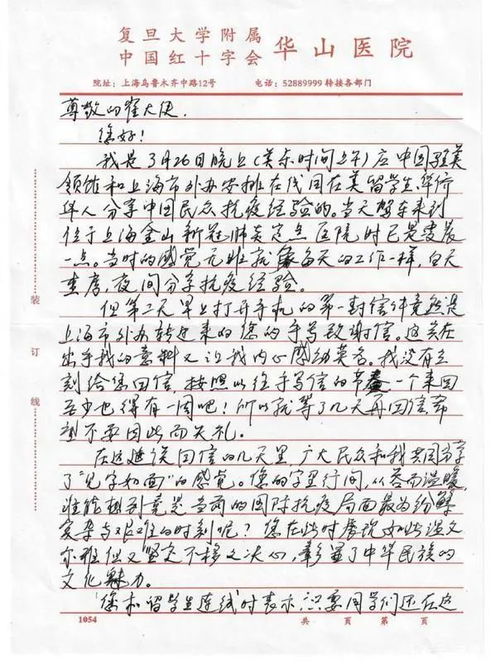 复旦大学附属
中国红十字会 华山医院
院址：上海乌鲁木齐中路12号 电话：52889999 转接各部门
尊敬的崔大使，
您好！
我是3月26日晚上（美东时间上午）应中国驻美
领馆和上海市外办安排在线同在美留学生、华侨
华人分享中国民众抗疫经验的。当天驾车来到
位于上海金山新冠肺炎定点医院时已是凌晨
一点。当时的感觉无非就像每天的工作一样，白天
查房，夜间分享抗疫经验。
但第二天早上打开手机的第一封信件竟然是
上海市外办转过来的您的手写致谢信。这实在
出乎我的意料又让我内心感动莫名。我没有立
刻给您回信，按照以往手写信的节奏一个来回
至少也得有一周吧！所以就等了几天再回信，希
望不要因此而失礼。
在这延误回信的几天里，广大民众和我共同分享
了“见字如面”的感觉。您的字里行间，从容而温暖，
谁能想到竟是当两的国对抗疫局面最为纷繁
复杂与艰难的时刻呢？您在此时展现如此温文
尔雅但又坚定不移之决心，彰显了中华民族的
文化魅力。
您和留学生连线时表示，只要同学们还在这
装
订
线
1054 共 页 第 页